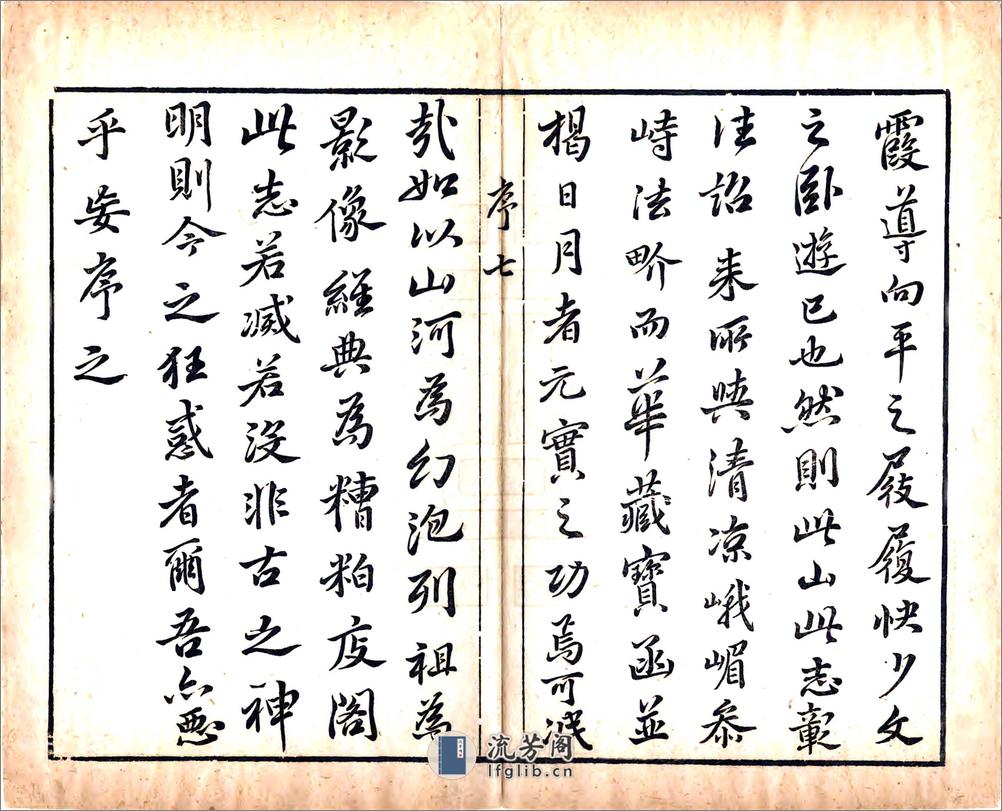 霞導向平之屐履快少文
之卧遊已也然則此山此志彰
往詔来所與清凉峨嵋叅
峙法畍而華藏寶函並
揭日月者元實之功焉可
序七
哉如以山河為幻泡列祖為
影像經典為糟粕庋閣
此志若滅若沒非古之神
明則今之狂惑者爾吾亦惡
乎妄序之
流芳阁
lfglib.cn